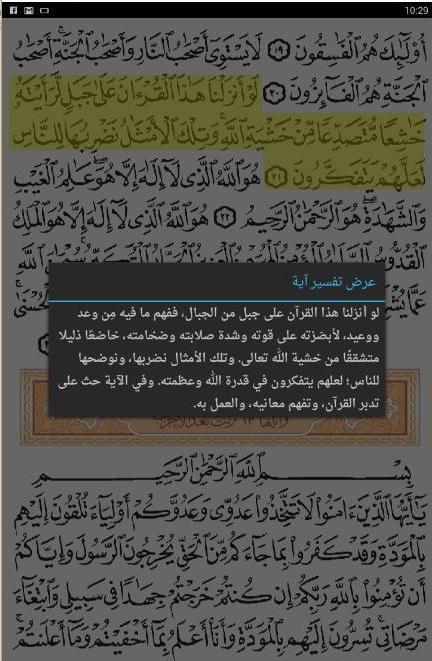 10:29
أُوْلَٰٓئِكَ هُمُ ٱلْفَٰسِقُونَ ١٩ لَا يَسْتَوِىٓ أَصْحَٰبُ ٱلنَّارِ وَأَصْحَٰبُ ٱلْجَنَّةِ أَصْحَٰبُ
ٱلْجَنَّةِ هُمُ ٱلْفَآئِزُونَ ٢٠ لَوْ أَنزَلْنَا هَٰذَا ٱلْقُرْءَانَ عَلَىٰ جَبَلٍ لَّرَأَيْتَهُۥ
خَٰشِعًا مُّتَصَدِّعًا مِّنْ خَشْيَةِ ٱللَّهِ وَتِلْكَ ٱلْأَمْثَٰلُ نَضْرِبُهَا لِلنَّاسِ
لَعَلَّهُمْ يَتَفَكَّرُونَ ٢١ هُوَ ٱللَّهُ ٱلَّذِى لَآ إِلَٰهَ إِلَّا هُوَ عَٰلِمُ ٱلْغَيْبِ
وَٱلشَّهَٰدَةِ هُوَ ٱلرَّحْمَٰنُ ٱلرَّحِيمُ ٢٢ هُوَ ٱللَّهُ ٱلَّذِى لَآ إِلَٰهَ إِلَّا هُوَ ٱلْمَلِكُ
عرض تفسير آية
لو أنزلنا هذا القرآن على جبل من الجبال، ففهم ما فيه مِن وعد
ووعيد، لأبصَرْته على قوته وشدة صلابته وضخامته، خاضعًا ذليلا
متشققًا من خشية الله تعالى. وتلك الأمثال نضربها، ونوضحها
للناس؛ لعلهم يتفكرون في قدرة الله وعظمته. وفي الآية حث على
تدبر القرآن، وتفهم معانيه، والعمل به.
بِسْمِ ٱللَّهِ ٱلرَّحْمَٰنِ ٱلرَّحِيمِ
يَٰٓأَيُّهَا ٱلَّذِينَ ءَامَنُوا۟ لَا تَتَّخِذُوا۟ عَدُوِّى وَعَدُوَّكُمْ أَوْلِيَآءَ تُلْقُونَ إِلَيْهِم
بِٱلْمَوَدَّةِ وَقَدْ كَفَرُوا۟ بِمَا جَآءَكُم مِّنَ ٱلْحَقِّ يُخْرِجُونَ ٱلرَّسُولَ وَإِيَّاكُمْ
أَن تُؤْمِنُوا۟ بِٱللَّهِ رَبِّكُمْ إِن كُنتُمْ خَرَجْتُمْ جِهَٰدًا فِى سَبِيلِى وَٱبْتِغَآءَ
مَرْضَاتِى تُسِرُّونَ إِلَيْهِم بِٱلْمَوَدَّةِ وَأَنَا۠ أَعْلَمُ بِمَآ أَخْفَيْتُمْ وَمَآ أَعْلَنتُمْ